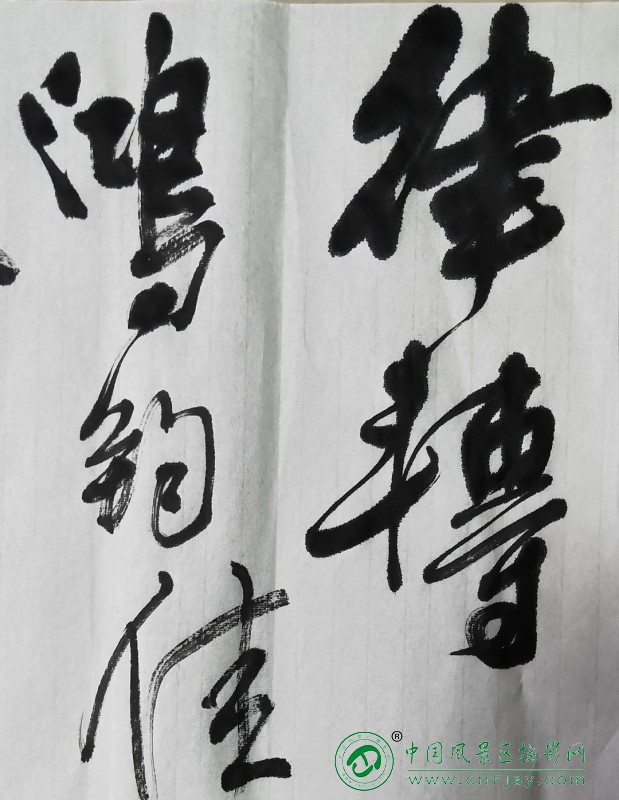 律轉
鴻鈞佳
®
中国风景区摄影网
www.cnfjqy.com